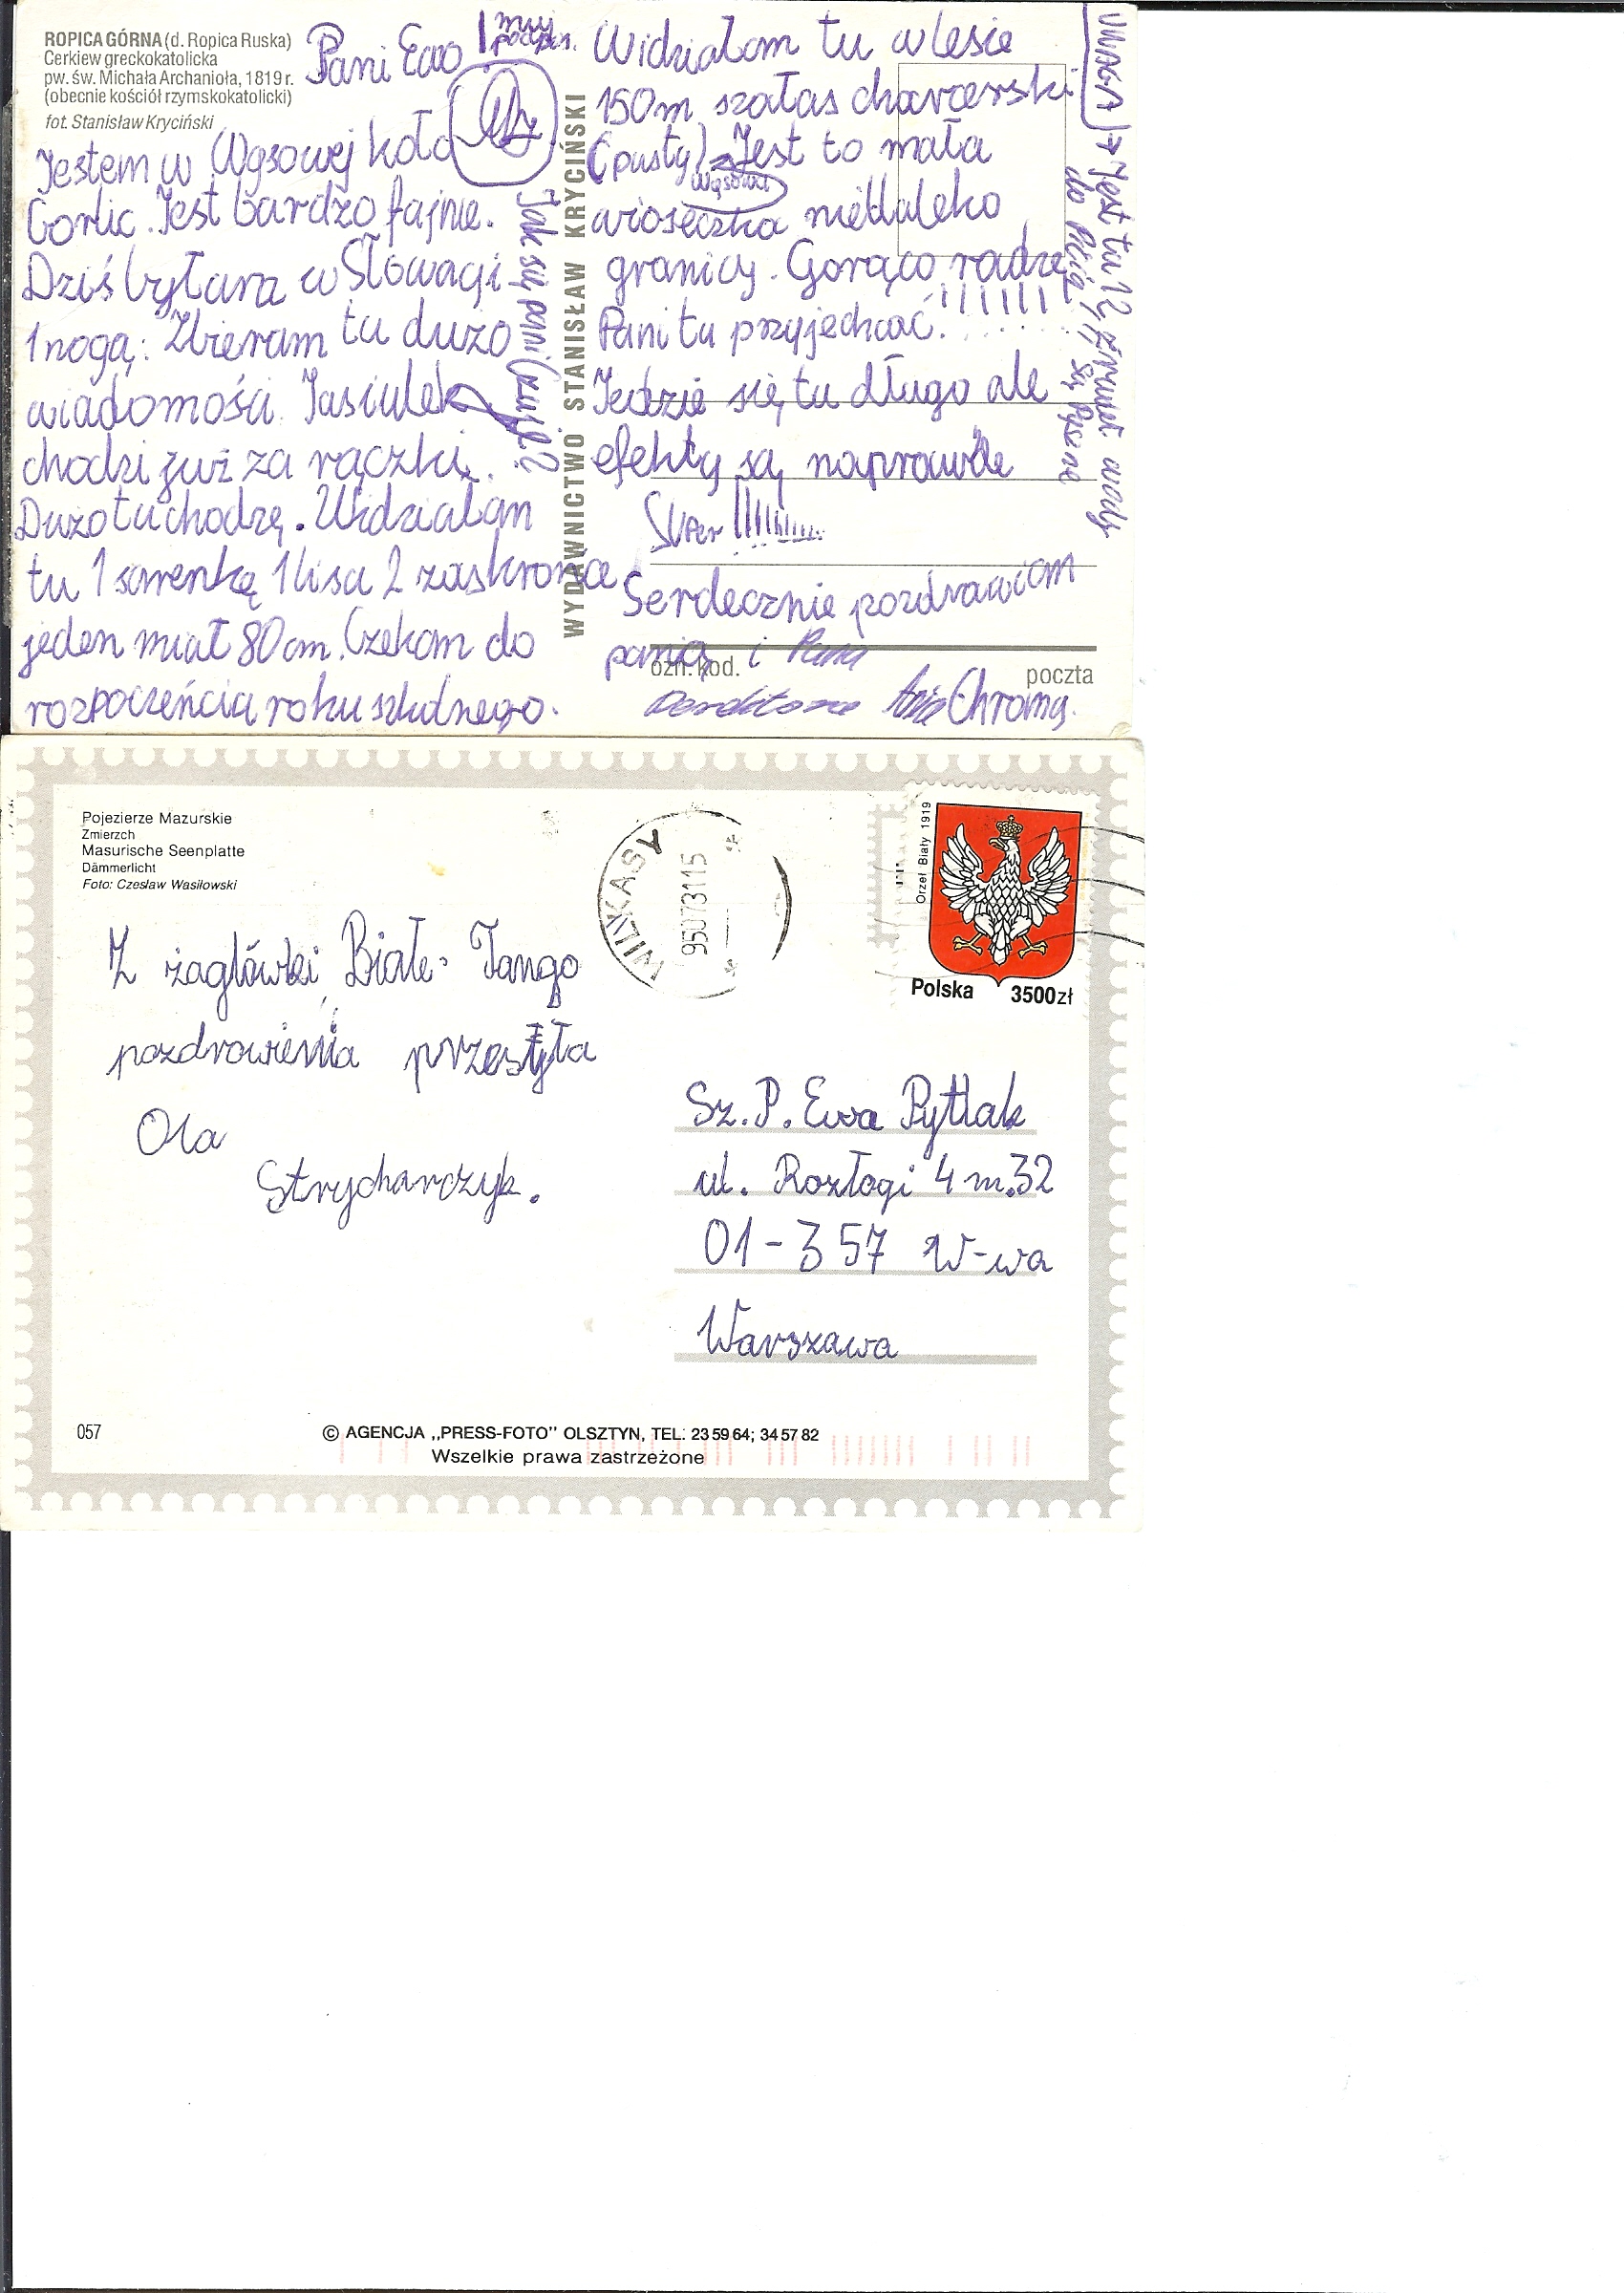 ROPICA GÓRNA (d. Ropica Ruska)
Cerkiew greckokatolicka
pw. św. Michała Archanioła, 1819 r.
(obecnie kościół rzymskokatolicki)
fot. Stanisław Kryciński
Pani Ewo
muj
podpis.
Jestem w Wysowej koło
Gorlic. Jest bardzo fajnie.
Dziś byłam w Słowacji
1 nogą: Zbieram tu dużo
wiadomości. Jasiulek
chodzi już za rączki.
Dużo tu chodzę. Widziałam
tu 1 sarenkę 1 lisa 2 zaskrońce
jeden miał 80 cm. Czekam do
rozpoczeńcia roku szkolnego.
Jak się pani czuje?
WYDAWNICTWO STANISŁAW KRYCIŃSKI
Widziałam tu w lesie
150 m szałas charcerski
(pusty) Jest to mała
wioseczka niedaleko
granicy. Gorąco radzę
Pani tu przyjechać!!!!!!!
Jedzie się tu długo ale
efekty są naprawde
Super !!!!!!!!!!
Serdecznie pozdrawiam
panią i Pana
Ania Chroma.
ozn. kod.
poczta
UWAGA → Jest tu 12 źrudeł wody
do Picia, są Pyszne
Pojezierze Mazurskie
Zmierzch
Masurische Seenplatte
Dämmerlicht
Foto: Czesław Wasiłowski
WILKASY
950731 15
Orzeł Biały 1919
Polska 3500 zł
Z żaglówki Białe Tango
pozdrowienia przesyła
Ola
Strycharczyk.
Sz. P. Ewa Pytlak
ul. Rozłogi 4 m.32
01-357 W-wa
Warszawa
057
© AGENCJA ,,PRESS-FOTO'' OLSZTYN, TEL: 23 59 64; 34 57 82
Wszelkie prawa zastrzeżone